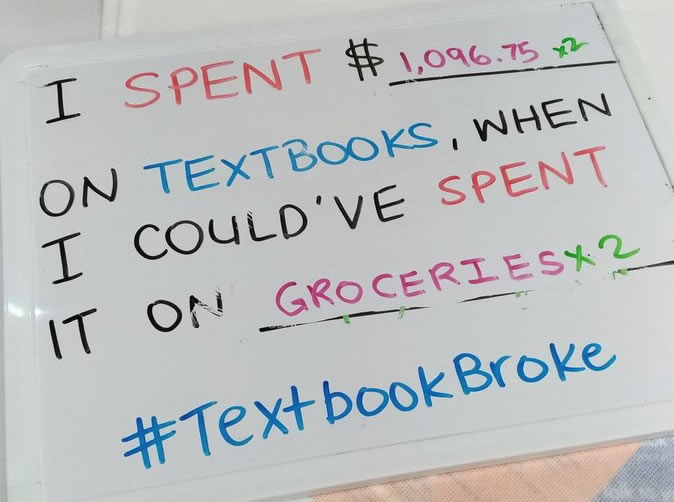 I SPENT $ 1,096.75 x2
ON TEXTBOOKS, WHEN
I COULD'VE SPENT
IT ON GROCERIES x2
#TextbookBroke